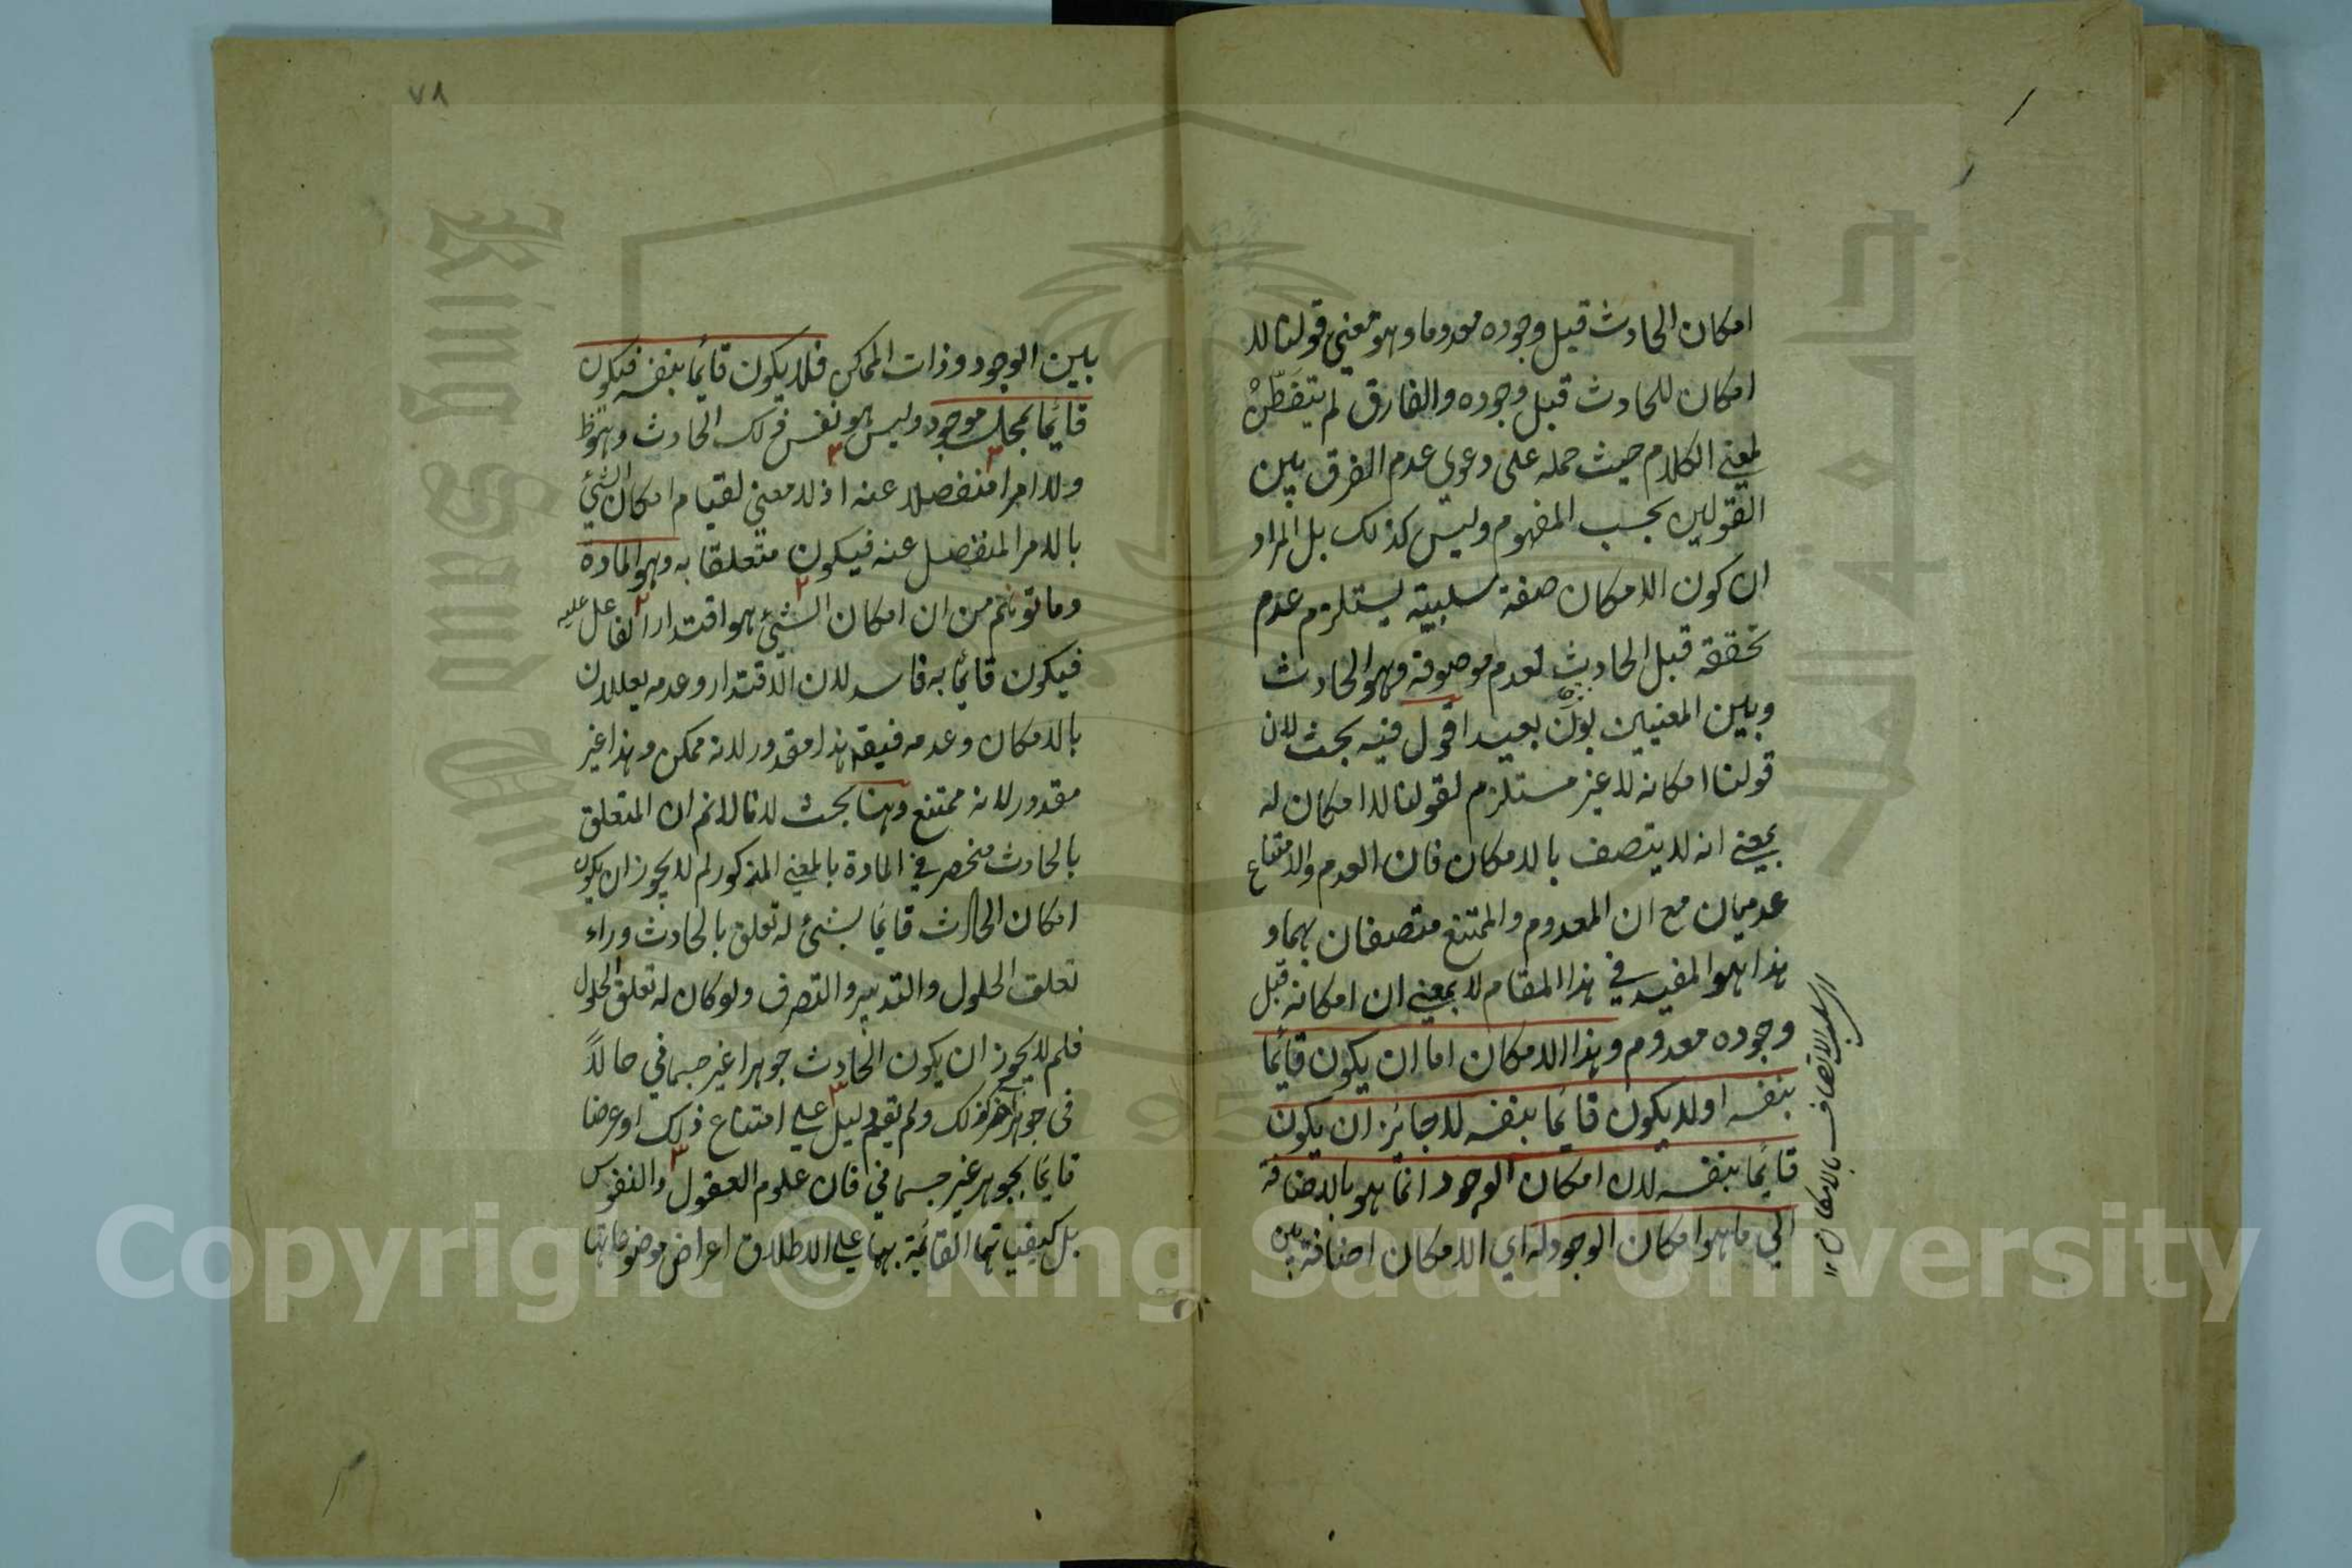 امكان الحادث قبل وجوده معدوما وهو معنى قولنا لا
امكان للحادث قبل وجوده والفارق لم يتفطن
لمعنى الكلام حيث حمله على دعوى عدم الفرق بين
القولين بحسب المفهوم وليس كذلك بل المراد
ان كون الامكان صفة سلبية يستلزم عدم
تحققه قبل الحادث لعدم موصوفة وهو الحادث
وبين المعنيين بون بعيد اقول فيه بحث لان
قولنا امكانه لا غير مستلزم لقولنا لا امكان له
بمعنى انه لا يتصف بالامكان فان العدم والامتناع
عدميان مع ان المعدوم والممتنع متصفان بهما و
هذا هو المفيد في هذا المقام لا بمعنى ان امكانه قبل
وجوده معدوم وهذا الامكان اما ان يكون قائما
بنفسه او لا يكون قائما بنفسه لا جائز ان يكون
قائما بنفسه لان امكان الوجود انما هو بالاضافة
الى ما هو امكان الوجود له اي الامكان اضافة بين
اي سلب الاتصاف بالامكان ١٢
٧٨
بين الوجود وذات الممكن فلا يكون قائما بنفسه فيكون
قائما بمحل موجود وليس هو نفس ذلك الحادث وهو ظ
ولا امرا منفصلا عنه اذ لا معنى لقيام امكان الشئ
بالامر المنفصل عنه فيكون متعلقا به وهو المادة
وما توهم من ان امكان الشئ هو اقتدار الفاعل عليه
فيكون قائما به فاسد لان الاقتدار وعدمه يعللان
بالامكان وعدمه فيقه هذا مقدور لانه ممكن وهذا غير
مقدور لانه ممتنع وهنا بحث لانا لانم ان المتعلق
بالحادث منحصر في المادة بالمعنى المذكور لم لا يجوز ان يكون
امكان الحادث قائما بشئ له تعلق بالحادث وراء
تعلق الحلول والتدبير والتصرف ولو كان له تعلق الحلول
فلم لا يجوز ان يكون الحادث جوهرا غير جسماني حالا
فى جوهر آخر كذلك ولم يقم دليل على امتناع ذلك او عرضا
قائما بجوهر غير جسماني فان علوم العقول والنفوس
بل كيفياتهما القائمة بهما على الاطلاق اعراض موضوعاتها
Copyright © King Saud University